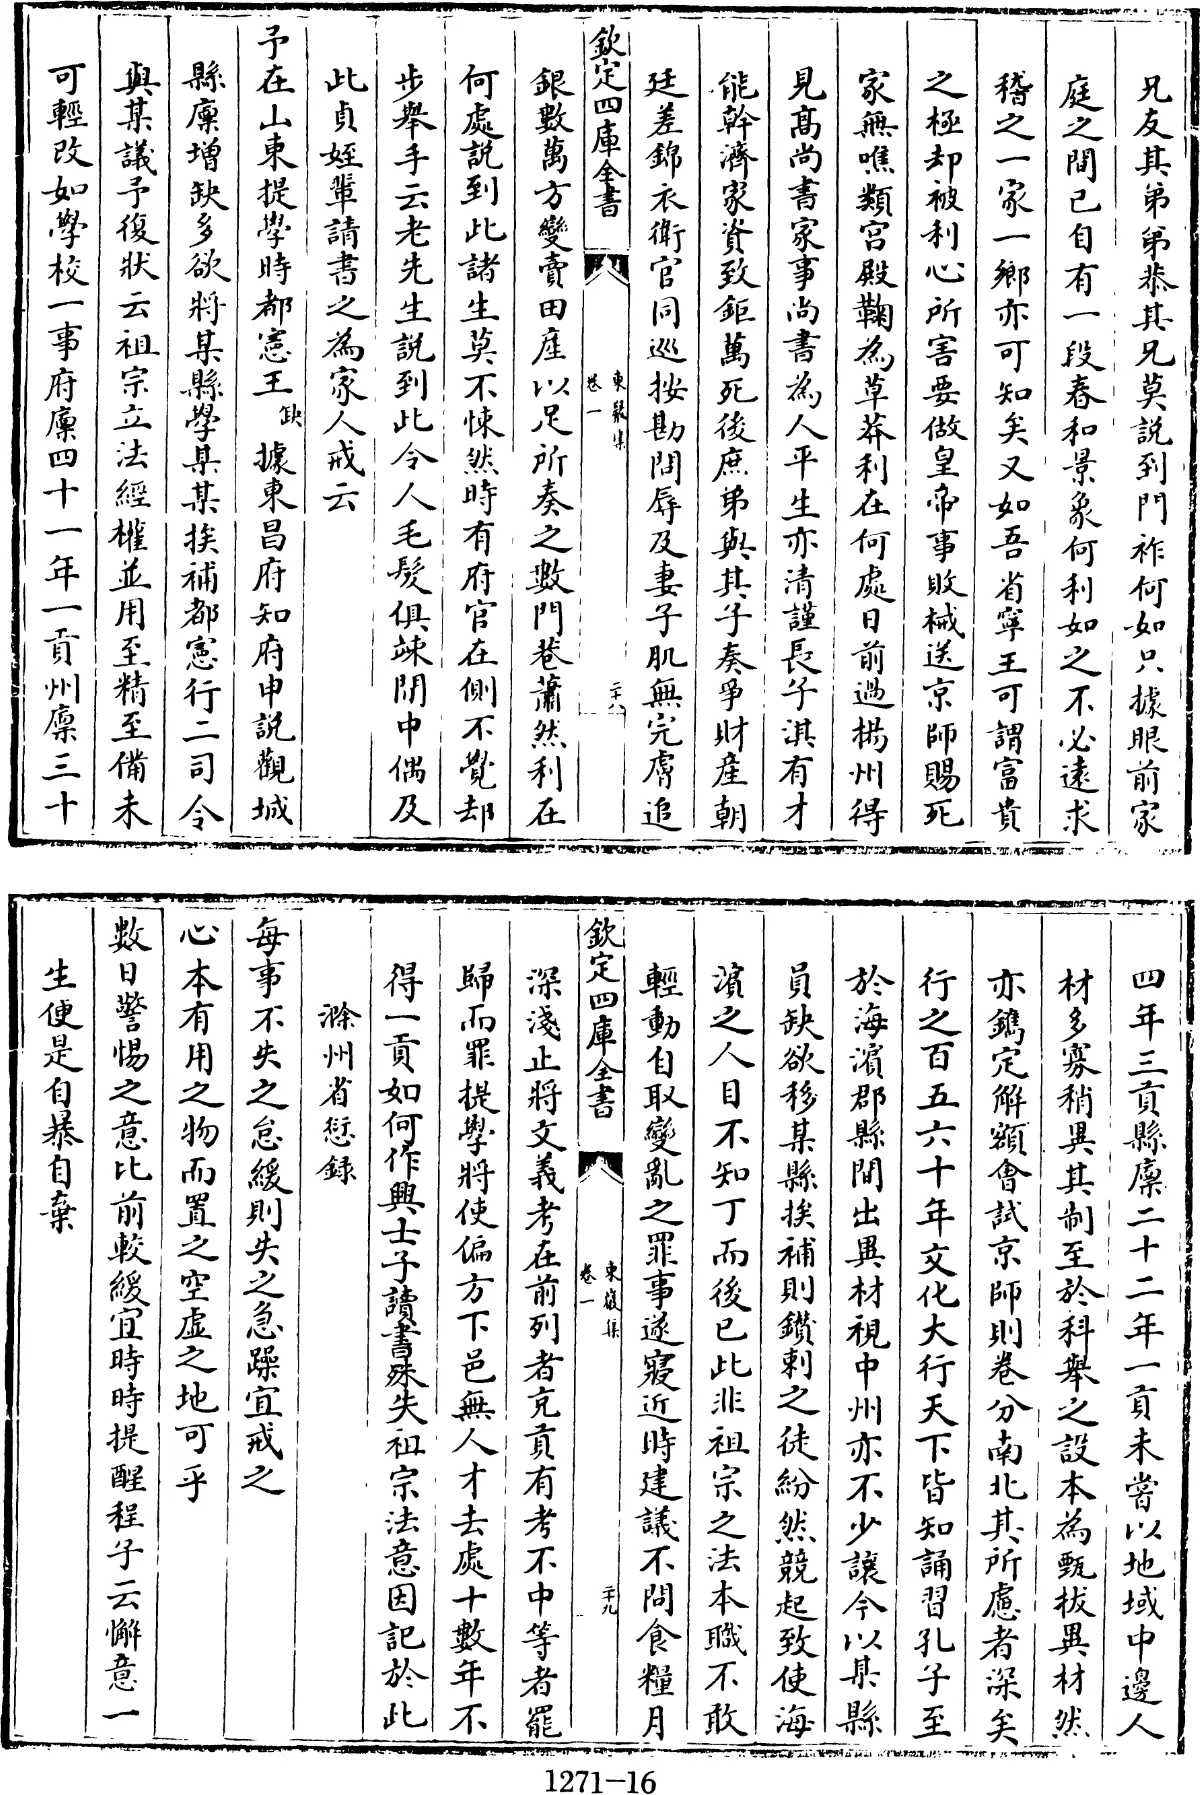 兄友其弟弟恭其兄莫説到門祚何如只據眼前家
庭之間已自有一段春和景象何利如之不必逺求
稽之一家一鄉亦可知矣又如吾省寧王可謂富貴
之極却被利心所害要做皇帝事敗械送京師賜死
家無噍類宫殿鞠為草莽利在何處日前過楊州得
見髙尚書家事尚書為人平生亦清謹長子淇有才
能幹濟家資致鉅萬死後庶弟與其子奏爭財産朝
廷差錦衣衛官同巡按勘問辱及妻子肌無完膚追
欽定四庫全書
東巖集
卷一
二十八
銀數萬方變賣田産以足所奏之數門巷蕭然利在
何處説到此諸生莫不悚然時有府官在側不覺却
步舉手云老先生説到此令人毛髮俱竦閒中偶及
此貞姪輩請書之為家人戒云
予在山東提學時都憲王缺據東昌府知府申説觀城
縣廩增缺多欲將某縣學某某挨補都憲行二司令
與某議予復狀云祖宗立法經權並用至精至備未
可輕改如學校一事府廩四十一年一貢州廩三十
四年三貢縣廩二十二年一貢未嘗以地域中邊人
材多寡稍異其制至於科舉之設本為甄拔異材然
亦鐫定解額會試京師則卷分南北其所慮者深矣
行之百五六十年文化大行天下皆知誦習孔子至
於海濵郡縣間出異材視中州亦不少讓今以某縣
員缺欲移某縣挨補則鑚剌之徒紛然競起致使海
濵之人目不知丁而後已此非祖宗之法本職不敢
輕動自取變亂之罪事遂寢近時建議不問食糧月
欽定四庫全書
東巖集
卷一
二十九
深淺止將文義考在前列者充貢有考不中等者罷
歸而罪提學將使偏方下邑無人才去處十數年不
得一貢如何作興士子讀書殊失祖宗法意因記於此
滁州省愆録
每事不失之怠緩則失之急躁宜戒之
心本有用之物而置之空虚之地可乎
數日警惕之意比前較緩宜時時提醒程子云懈意一
生便是自暴自棄
1271-16